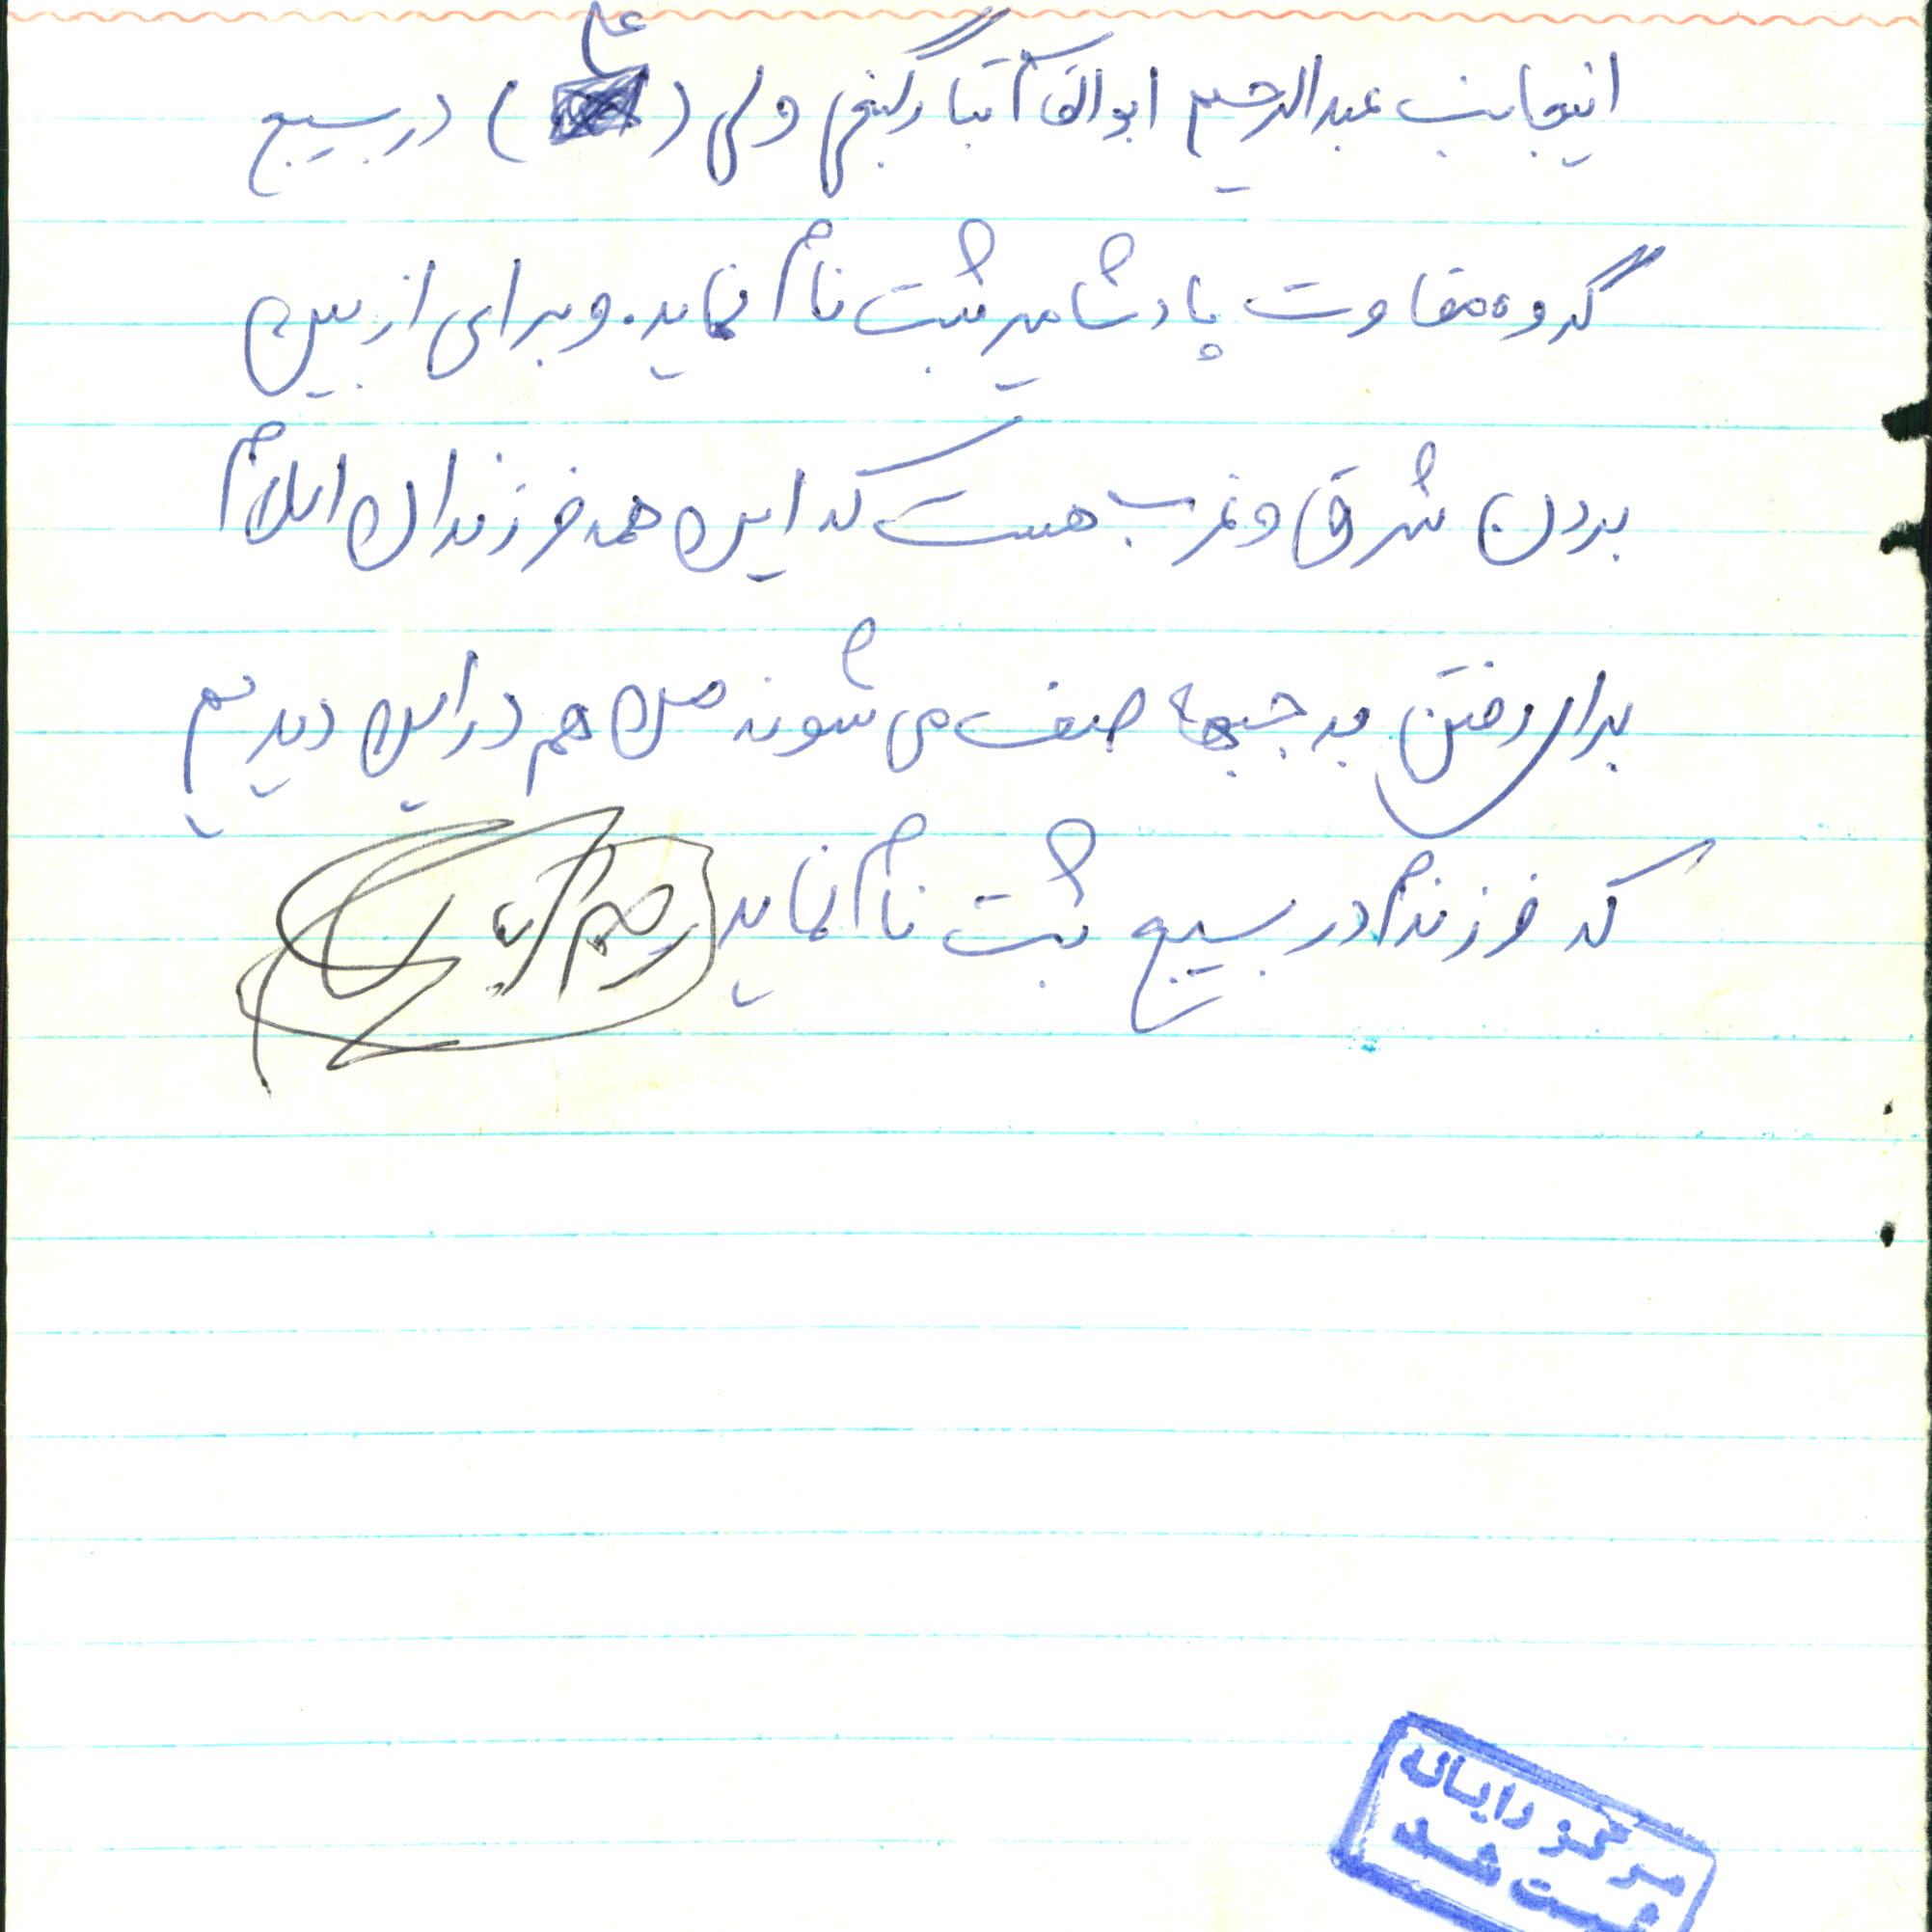 علی
اینجانب عبدالرحیم ابوالقا ولی ( ) در بسیج
گروه مقاوت پادشامیر ثبت نام نماید. و برای از بین
بردن شرق و غرب هست که این همه فرزندان اسلام
برای رفتن به جبهها صف می شوند من هم در این دیدیم
که فرزندم در بسیج ثبت نام نماید
مرکز رایانه
ثبت شد